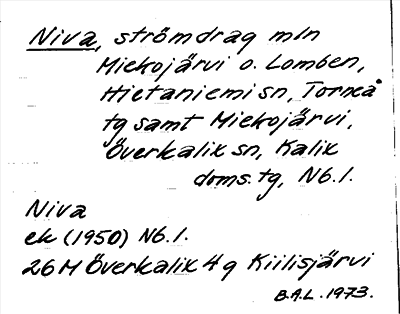 Niva, strömdrag mln
Miekojärvi o. Lomben,
Hietaniemi sn, Torneå
tg samt Miekojärvi,
Överkalix sn, Kalix
doms. tg, Nb. l.
Niva
ek (1950) Nb. l.
26M Överkalix 4 g Kiilisjärvi
B.A.L. 1973.